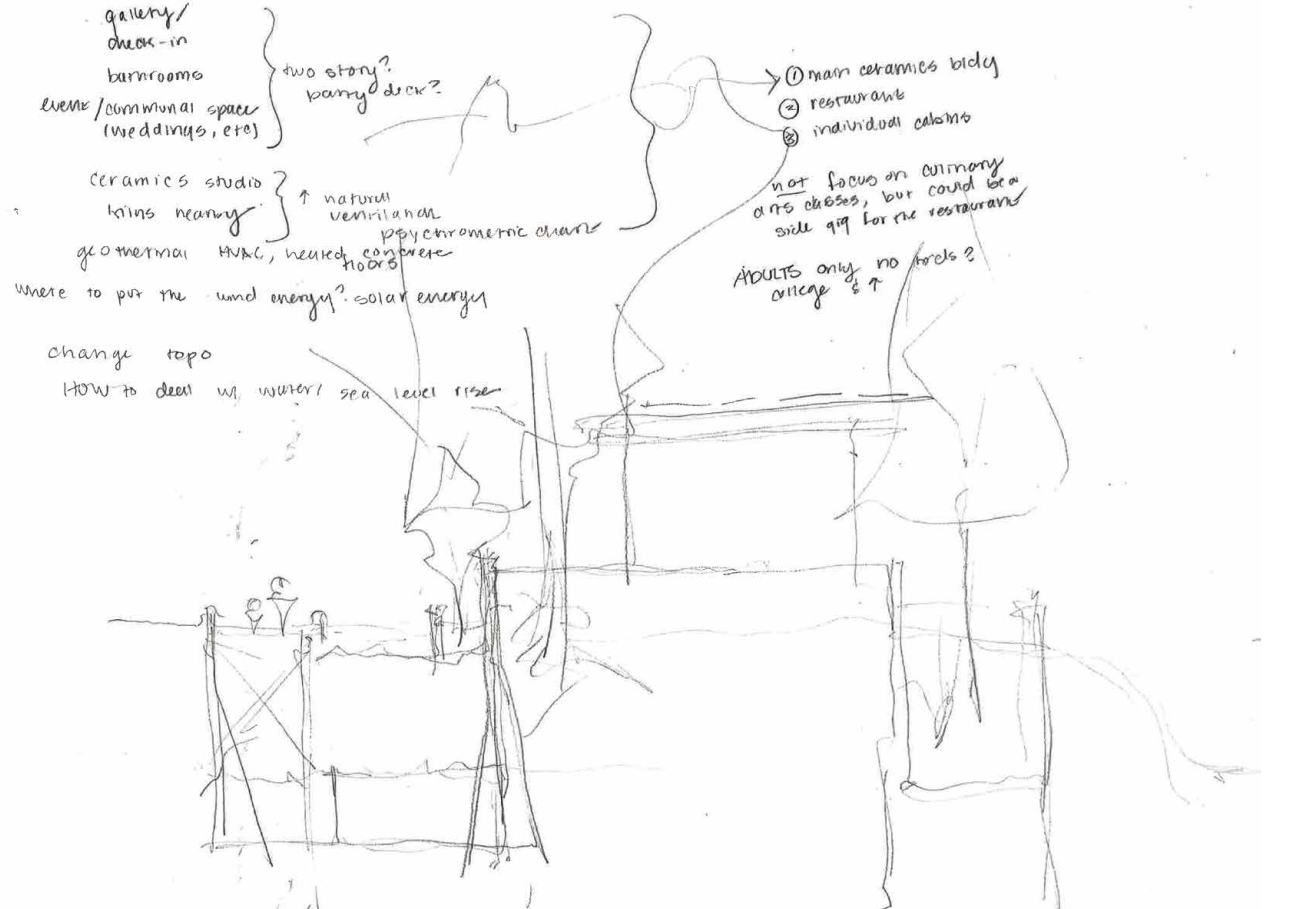 gallery/
check-in
bathrooms
event/communal space
(weddings, etc)
two story?
party deck?
ceramics studio
kilns nearby
↑ natural
ventilation
psychrometric chart
geothermal HVAC, heated concrete
floors
where to put the wind energy? solar energy
change topo
HOW to deal w/ water/ sea level rise
① main ceramics bldg
② restaurant
③ individual cabins
not focus on culinary
arts classes, but could be a
side gig for the restaurant
ADULTS only no kids?
college & ↑